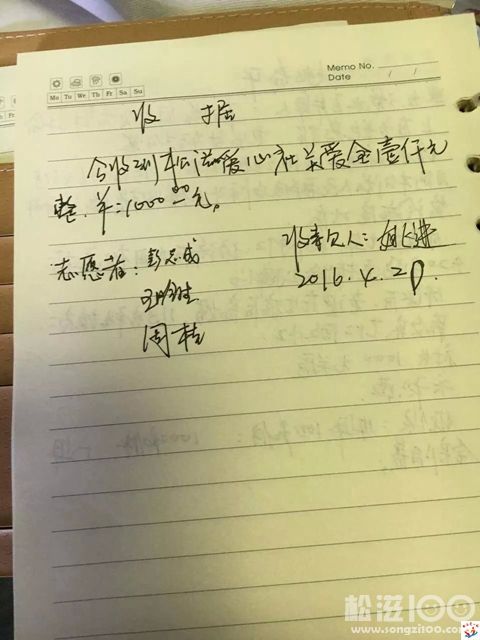 Memo No.
Date / /
Mo Tu We Th Fr Sa Su
收 据
今收到松滋爱心社关爱金壹仟元
整. 羊:1000.00元。
志愿者: 彭志成
收款人:
周桂
2016.4.20
松滋100
www.songzi100.com